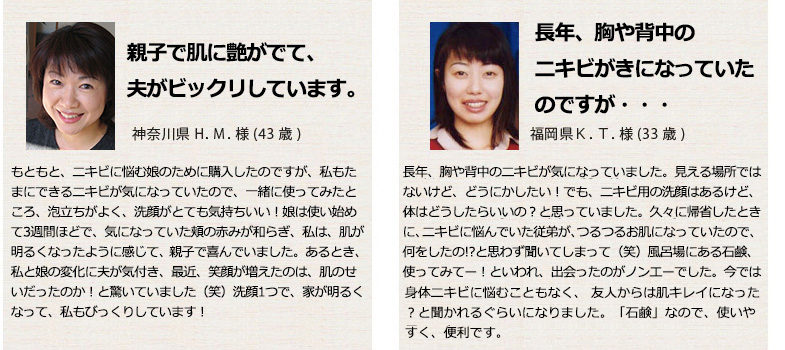 親子で肌に艶がでて、
夫がビックリしています。
神奈川県 H. M. 様 (43 歳 )
もともと、ニキビに悩む娘のために購入したのですが、私もた
まにできるニキビが気になっていたので、一緒に使ってみたと
ころ、泡立ちがよく、洗顔がとても気持ちいい！娘は使い始め
て3週間ほどで、気になっていた頬の赤みが和らぎ、私は、肌が
明るくなったように感じて、親子で喜んでいました。あるとき、
私と娘の変化に夫が気付き、最近、笑顔が増えたのは、肌のせ
いだったのか！と驚いていました（笑）洗顔1つで、家が明るく
なって、私もびっくりしています！
長年、胸や背中の
ニキビがきになっていた
のですが・・・
福岡県Ｋ. Ｔ. 様 (33 歳 )
長年、胸や背中のニキビが気になっていました。見える場所では
ないけど、どうにかしたい！でも、ニキビ用の洗顔はあるけど、
体はどうしたらいいの？と思っていました。久々に帰省したとき
に、ニキビに悩んでいた従弟が、つるつるお肌になっていたので、
何をしたの!?と思わず聞いてしまって（笑）風呂場にある石鹸、
使ってみてー！といわれ、出会ったのがノンエーでした。今では
身体ニキビに悩むこともなく、 友人からは肌キレイになった
？と聞かれるぐらいになりました。「石鹸」なので、使いや
すく、便利です。